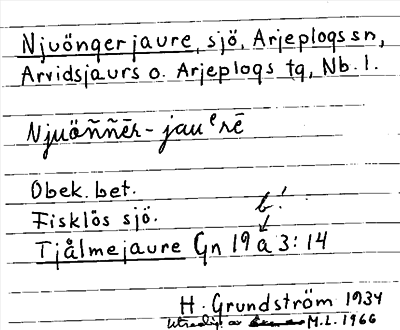 Njuöngerjaure, sjö, Arjeplogs sn,
Arvidsjaurs o. Arjeplogs tg, Nb. l.
Njuöññēr-jauᵉrē
Obek. bet.
Fisklös sjö.
b!
Tjålmejaure Gn 19 a 3:14
H. Grundström 1934
M.L. 1966